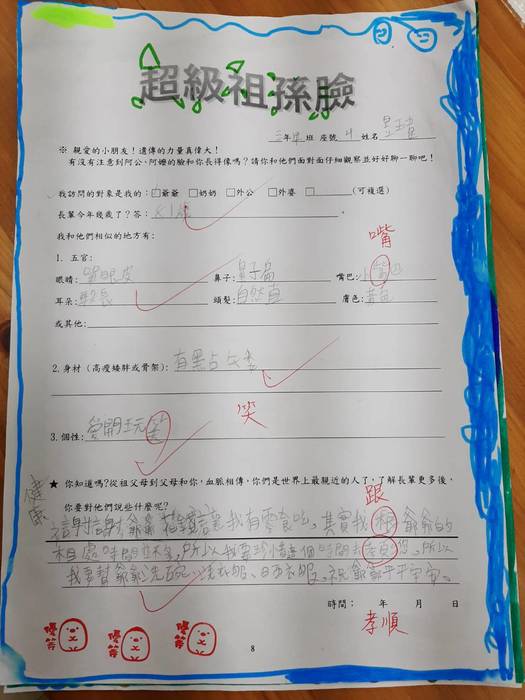 超級祖孫臉
三年 班 座號 4 姓名
※ 親愛的小朋友！遺傳的力量真偉大！
有沒有注意到阿公、阿嬤的臉和你長得像嗎？請你和他們面對面仔細觀察並好好聊一聊吧！
我訪問的對象是我的：□爺爺 □奶奶 □外公 □外婆 □ (可複選)
長輩今年幾歲了？答： 歲
我和他們相似的地方有：
嘴
1. 五官：
眼睛： 眼皮 鼻子：鼻子扁 嘴巴：小
耳朵： 長 頭髮：自然直 膚色：黃色
或其他：
2.身材（高瘦矮胖或骨架)：有點
笑
3.個性：愛開玩笑
★ 你知道嗎?從祖父母到父母和你，血脈相傳，你們是世界上最親近的人了，了解長輩更多後，
你要對他們說些什麼呢？
跟
健康
謝謝爺爺 讓我有零食吃。其實我 爺爺的
相處時間 ，所以我要珍惜每個時間去孝 您。所以
我要幫爺爺洗碗、洗衣服、 衣服。祝爺爺平平安安。
時間： 年 月 日
孝順
優等 優等 優等
8